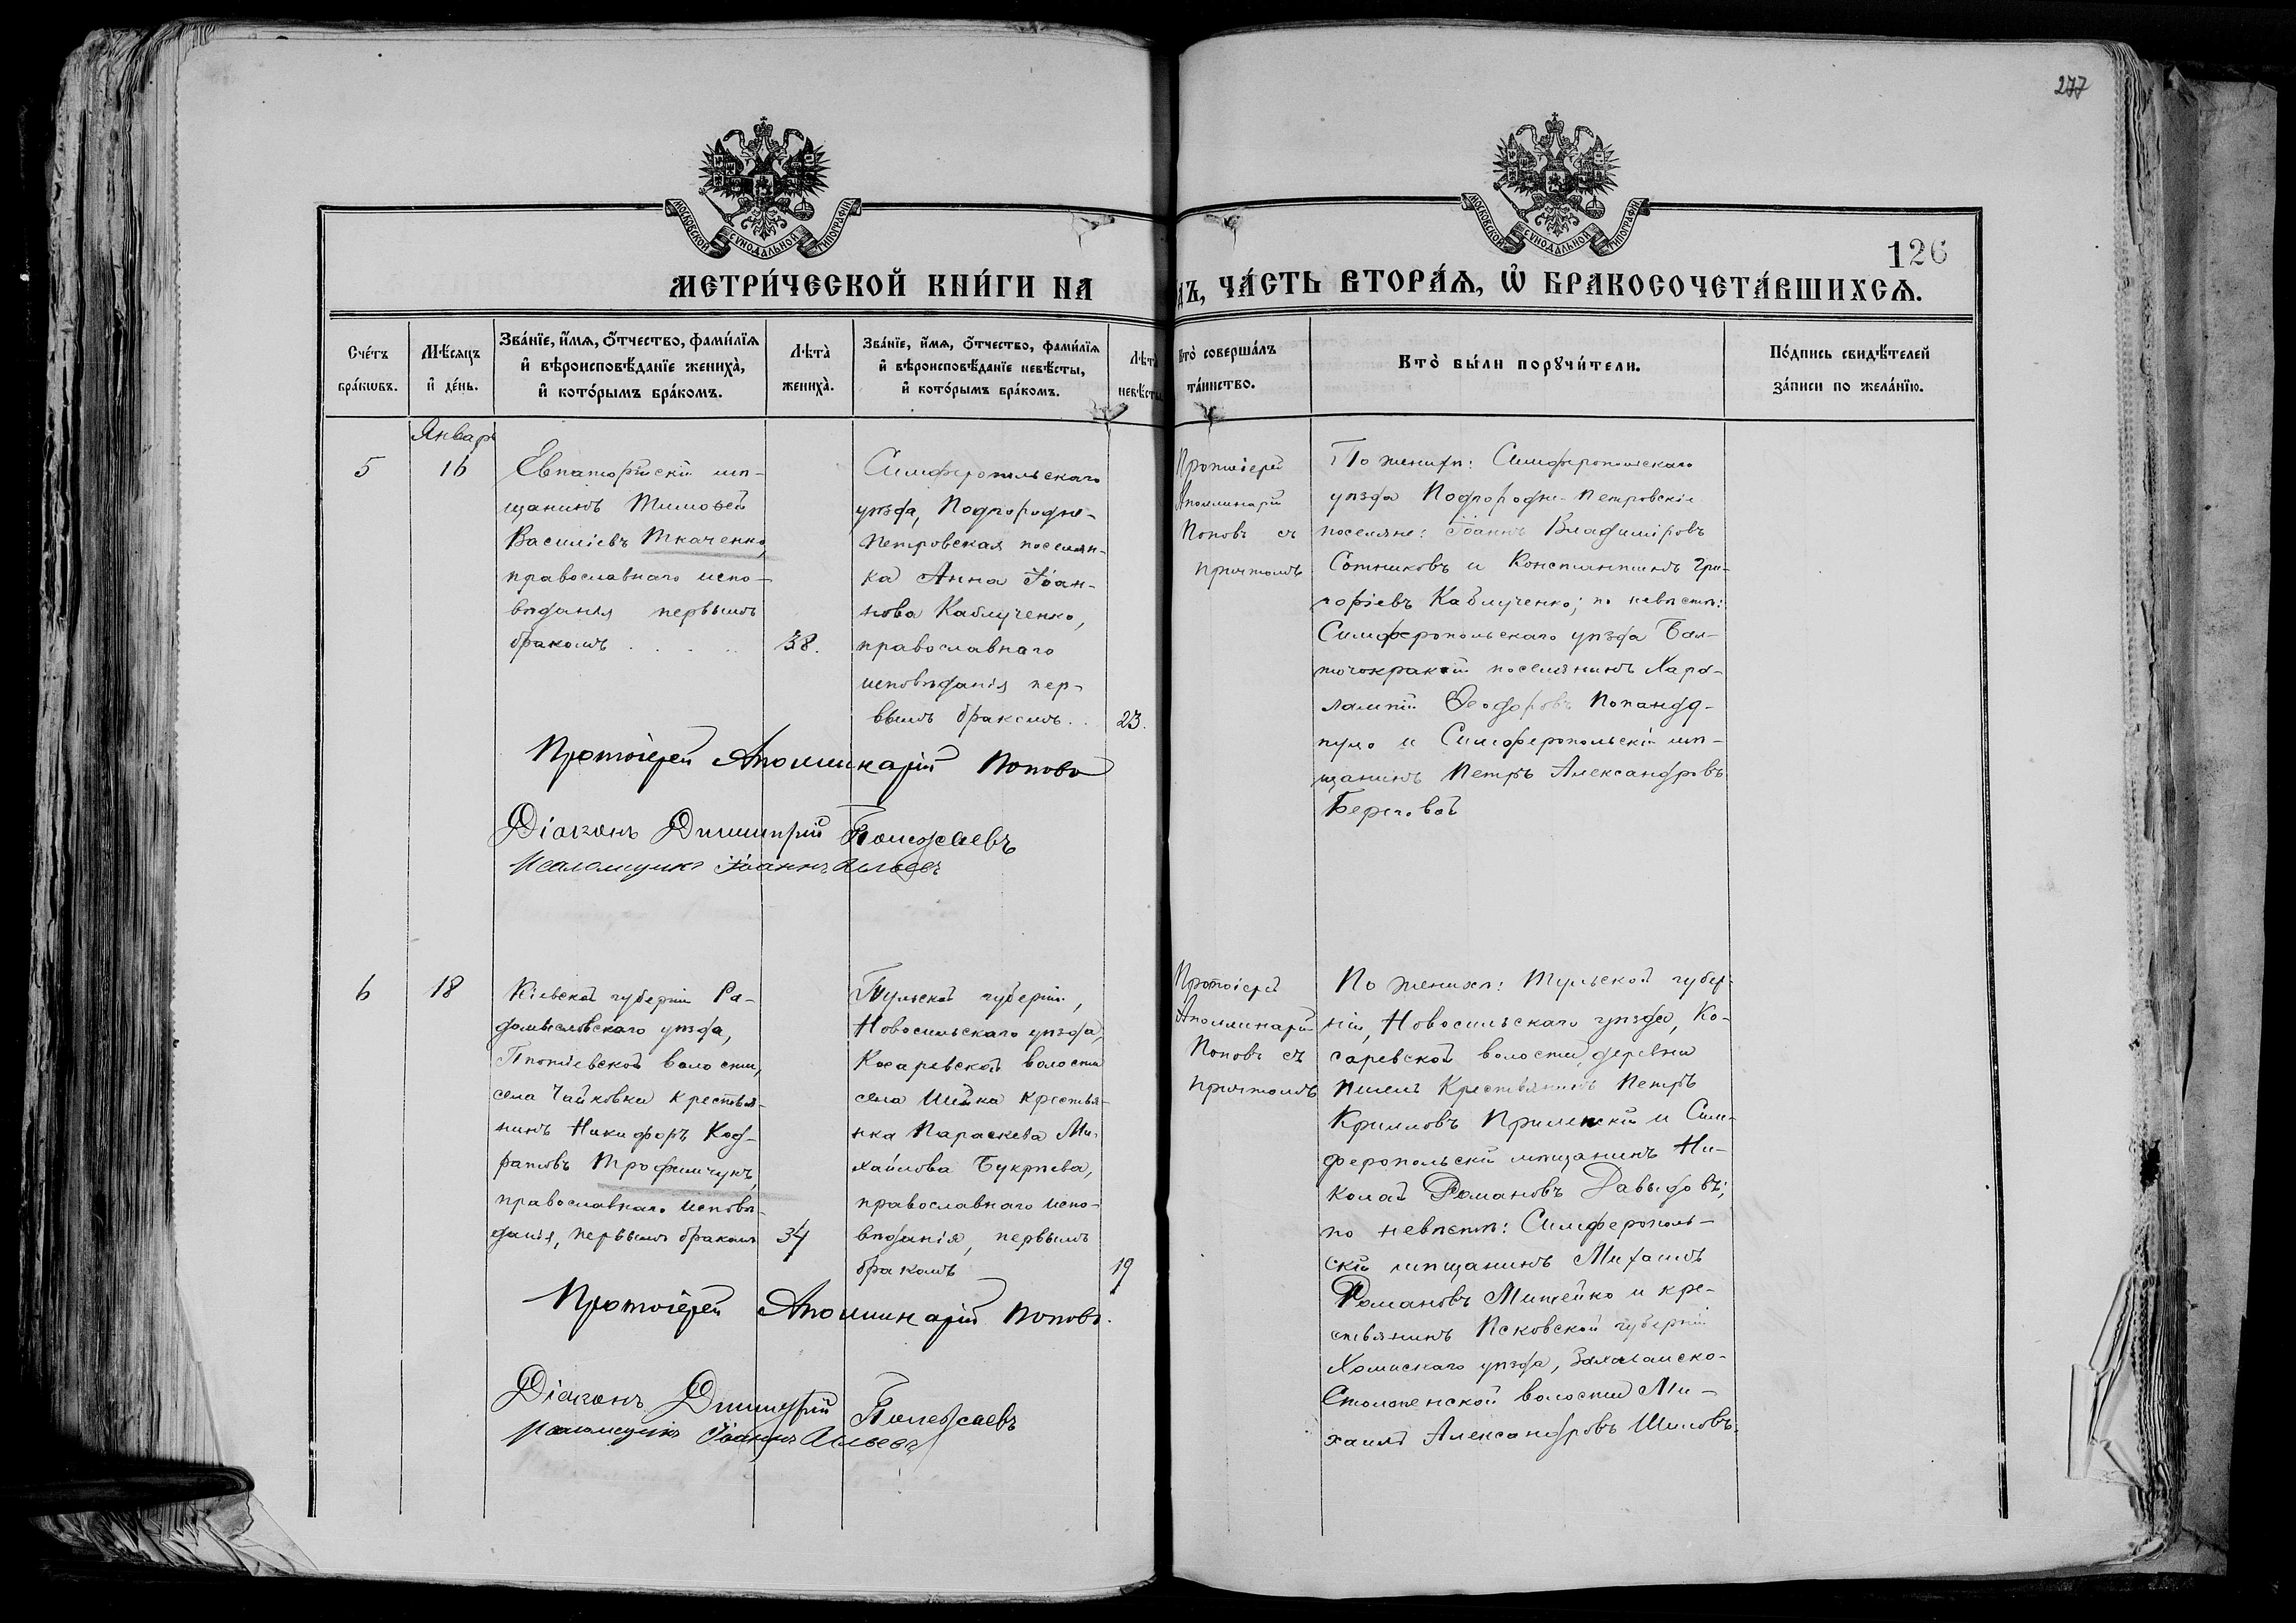 277
МОСКОВСКОЙ СѴНОДАЛЬНОЙ ТИПОГРАФІИ
МОСКОВСКОЙ СѴНОДАЛЬНОЙ ТИПОГРАФІИ
126
МЕТРИ́ЧЕСКОЙ КНИ́ГИ НА
ДЪ, ЧА́СТЬ ВТОРА́Ѧ, Ѡ҆ БРАКОСОЧЕТА́ВШИХСѦ.
Сче́тъ
бра́кѡвъ.
Мѣ́сяцъ
и҆ де́нь.
Зва́нїе, и҆́мѧ, ѻ҆́тчество, фами́лїѧ
и҆ вѣроисповѣ́данїе жениха̀,
и҆ кото́рымъ бра́комъ.
Лѣта̀
жениха̀.
Зва́нїе, и҆́мѧ, ѻ҆́тчество, фами́лїѧ
и҆ вѣроисповѣ́данїе невѣ́сты,
и҆ кото́рымъ бра́комъ.
Лѣта̀
невѣ́сты
Кто̀ соверша́лъ
та́инство.
Кто̀ бы́ли порꙋчи́тели.
По́дпись свидѣ́телей
за́писи по жела́нїю.
Январь
5
16
Евпаторійскій мѣ-
щанинъ Тимоѳей
Василіевъ Ткаченко,
православнаго испо-
вѣданія первымъ
бракомъ . . . . .
38.
Симферопольскаго
уѣзда, Подгородне-
Петровская поселян-
ка Анна Іоан-
нова Каблученко,
православнаго
исповѣданія пер-
вымъ бракомъ . .
23.
Протоіерей
Аполлинарій
Поповъ съ
причтомъ
По женихѣ: Симферопольскаго
уѣзда Подгородне-Петровскіе
поселяне: Іоаннъ Владиміровъ
Сотниковъ и Константинъ Гри-
горіевъ Каблученко; по невѣстѣ:
Симферопольскаго уѣзда
поселянинъ Хара-
лампій Ѳеодоровъ Попанду-
пуло и Симферопольскій мѣ-
щанинъ Петръ Александровъ
Береговой
Протоіерей Аполлинарій Поповъ
Діаконъ Димитрій Полежаевъ
Псаломщикъ Іоаннъ
6
18
Кіевской губерніи Ра-
домысловскаго уѣзда,
волости,
села Чайковки крестья-
нинъ Никифоръ Код-
ратовъ Трофимчукъ,
православнаго исповѣ-
данія, первымъ бракомъ
34
Тульской губерніи,
Новосильскаго уѣзда,
Косаревской волости
села крестьян-
нка Параскева Ми-
хайлова Букрѣева,
православнаго испо-
вѣданія, первымъ
бракомъ
19
Протоіерей
Аполлинарій
Поповъ съ
причтомъ
По женихѣ: Тульской губер-
ніи, Новосильскаго уѣзда, Ко-
саревской волости, деревни
крестьянинъ Петръ
и Сим-
феропольскій мѣщанинъ Ни-
колай Романовъ Давыдовъ;
по невѣстѣ: Симферополь-
скій мѣщанинъ Михаилъ
Романовъ Митейко и кре-
стьянинъ Псковской губерніи
Холмскаго уѣзда,
волости Ми-
хаилъ Александровъ Шиловъ.
Протоіерей Аполлинарій Поповъ.
Діаконъ Димитрій Полежаевъ
Псаломщикъ Іоаннъ